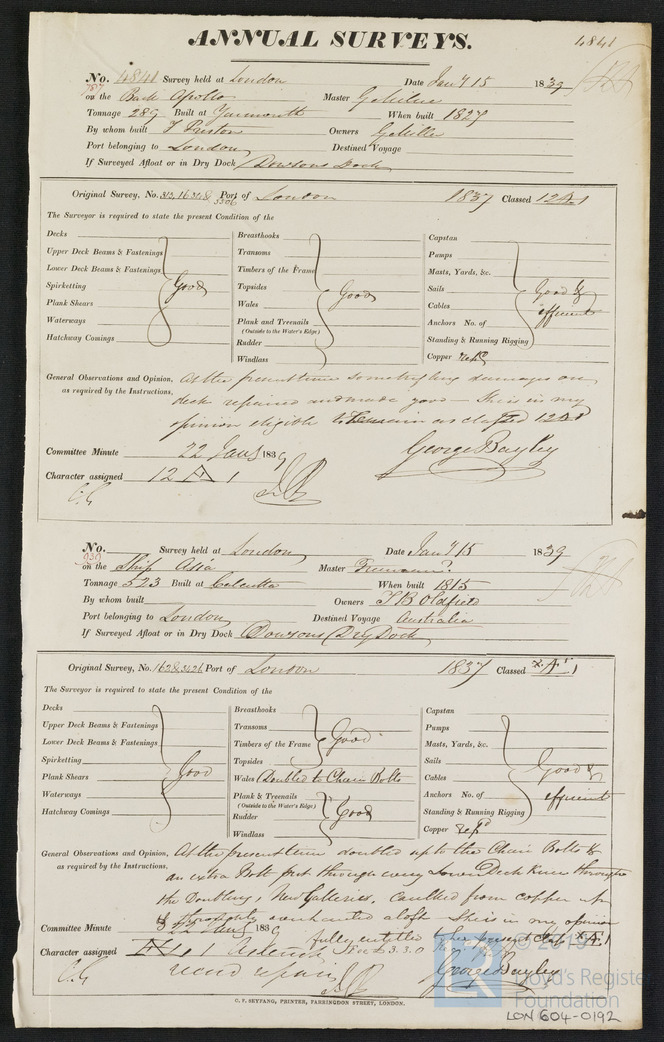 ANNUAL SURVEYS.
4841
No. 4841 Survey held at London Date Jany 15 1839
787
on the Bark Apollo Master G Milne
Tonnage 289 Built at Yarmouth When built 1827
By whom built T Preston Owners G Miller
Port belonging to London Destined Voyage
If Surveyed Afloat or in Dry Dock Dowsons Dock
Original Survey, No. Port of London 1837 Classed 12 A 1
The Surveyor is required to state the present Condition of the
Decks
Upper Deck Beams & Fastenings
Lower Deck Beams & Fastenings
Spirketting Good
Plank Shears
Waterways
Hatchway Comings
Breasthooks
Transoms
Timbers of the Frame
Topsides Good
Wales
Plank and Treenails
(Outside to the Water's Edge)
Rudder
Windlass
Capstan
Pumps
Masts, Yards, &c.
Sails Good &
Cables efficient
Anchors No. of
Standing & Running Rigging
Copper repd
General Observations and Opinion, At the present time some trifling damages on
as required by the Instructions, deck repaired and made good — She is in my
opinion eligible to remain as classed 12 A 1
Committee Minute 22 Jany 1839 George Bayley
Character assigned 12 A 1
No. Survey held at London Date Jany 15 1839
on the Ship Asia Master Freeman
Tonnage 523 Built at Calcutta When built 1815
By whom built Owners T B Oldfield
Port belonging to London Destined Voyage Australia
If Surveyed Afloat or in Dry Dock Dowsons Dry Dock
Original Survey, No. 162 & 3426 Port of London 1837 Classed *A 1
The Surveyor is required to state the present Condition of the
Decks
Upper Deck Beams & Fastenings
Lower Deck Beams & Fastenings
Spirketting
Plank Shears Good
Waterways
Hatchway Comings
Breasthooks
Transoms Good
Timbers of the Frame
Topsides
Wales Doubled to Chain Bolts
Plank & Treenails
(Outside to the Water's Edge) Good
Rudder
Windlass
Capstan
Pumps
Masts, Yards, &c.
Sails Good &
Cables
Anchors No. of efficient
Standing & Running Rigging
Copper repd
General Observations and Opinion, At the present time doubled up to the Chain Bolts &
as required by the Instructions, an extra Bolt put through every Lower Deck Knee through
the Doubling, New Galleries, Caulked from copper up
& thoroughly overhauled aloft - She is in my opinion
Committee Minute 22 Jany 1839
fully entitled to her present class *A 1
Character assigned A 1
George Bayley
C. F. SEYFANG, PRINTER, FARRINGDON STREET, LONDON.
© 2019
Lloyd's Register
Foundation
LON 604-0192